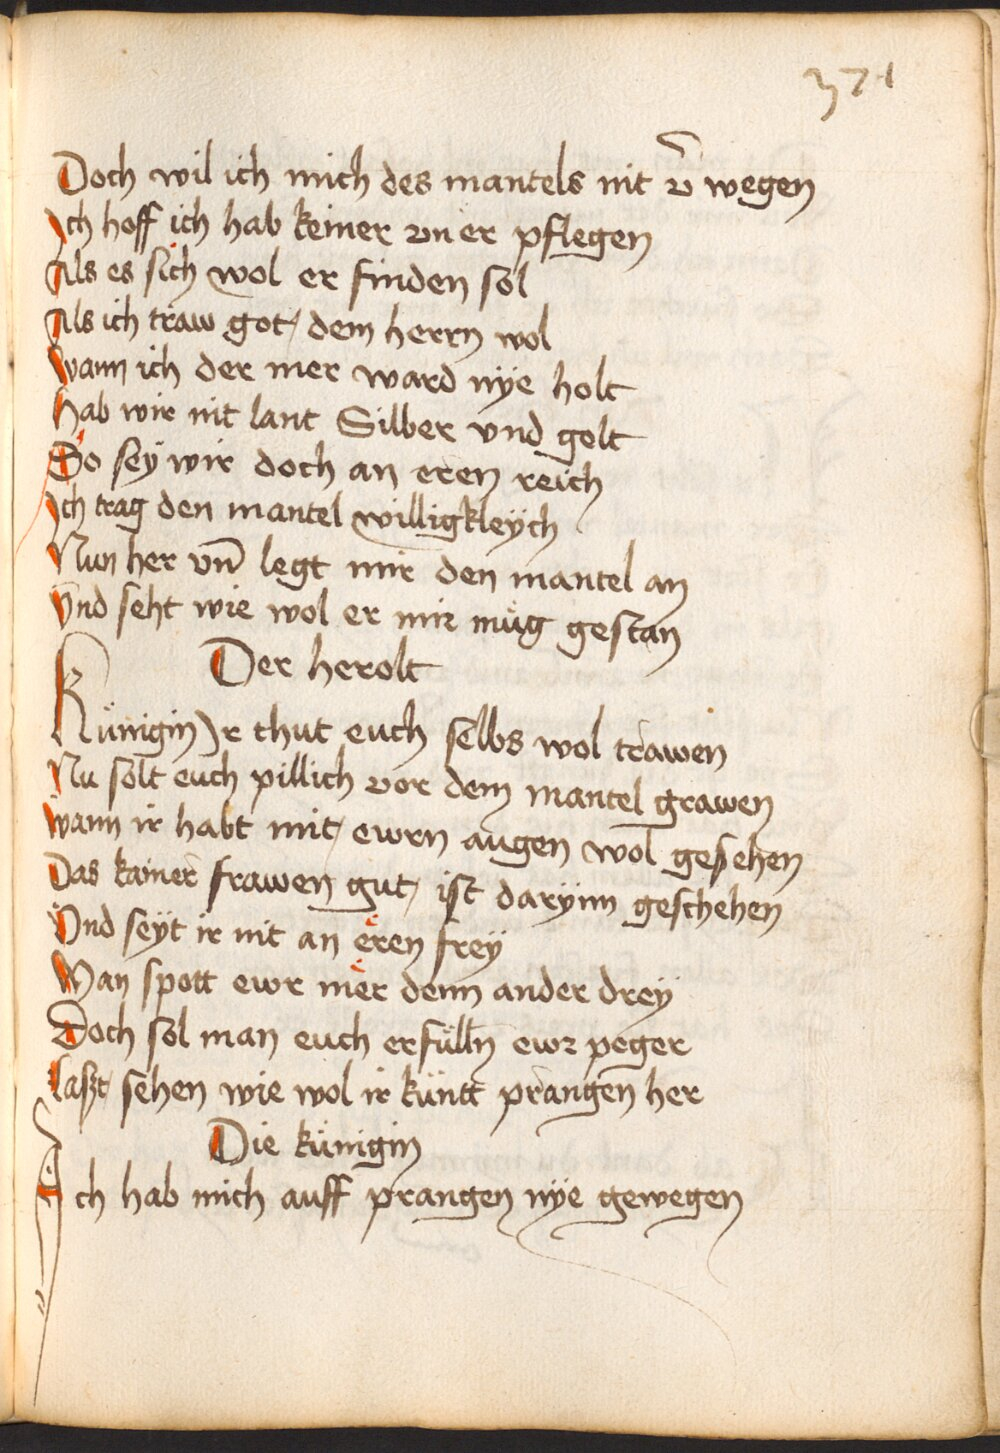 371
Doch wil ich mich des mantels nit v̄ wegen
Ich hoff ich hab keiner vn er pflegen
Als es sich wol er finden sol
Als ich traw got dem herrn wol
Wann ich der mer ward nÿe holt
Hab wir nit lant Silber vnd golt
So seÿ wir doch an eren reich
Ich trag den mantel willigkleÿch
Nun her vn̄ legt mir den mantel an
Vnd seht wie wol er mir müg gestan
Der herolt
Künigin Ir thut euch selbs wol trawen
Nu solt euch pillich vor dem mantel grawen
Wann ir habt mit ewrn augen wol gesehen
Das kainer frawen gut ist darÿnn geschehen
Vnd seÿt ir nit an eren freÿ
Man spott ewr mer denn ander dreÿ
Doch sol man euch erfülln̄ ewr peger
Laszt sehen wie wol ir küntt prangen her
Die künigin
Ich hab mich auff prangen nÿe gewegen